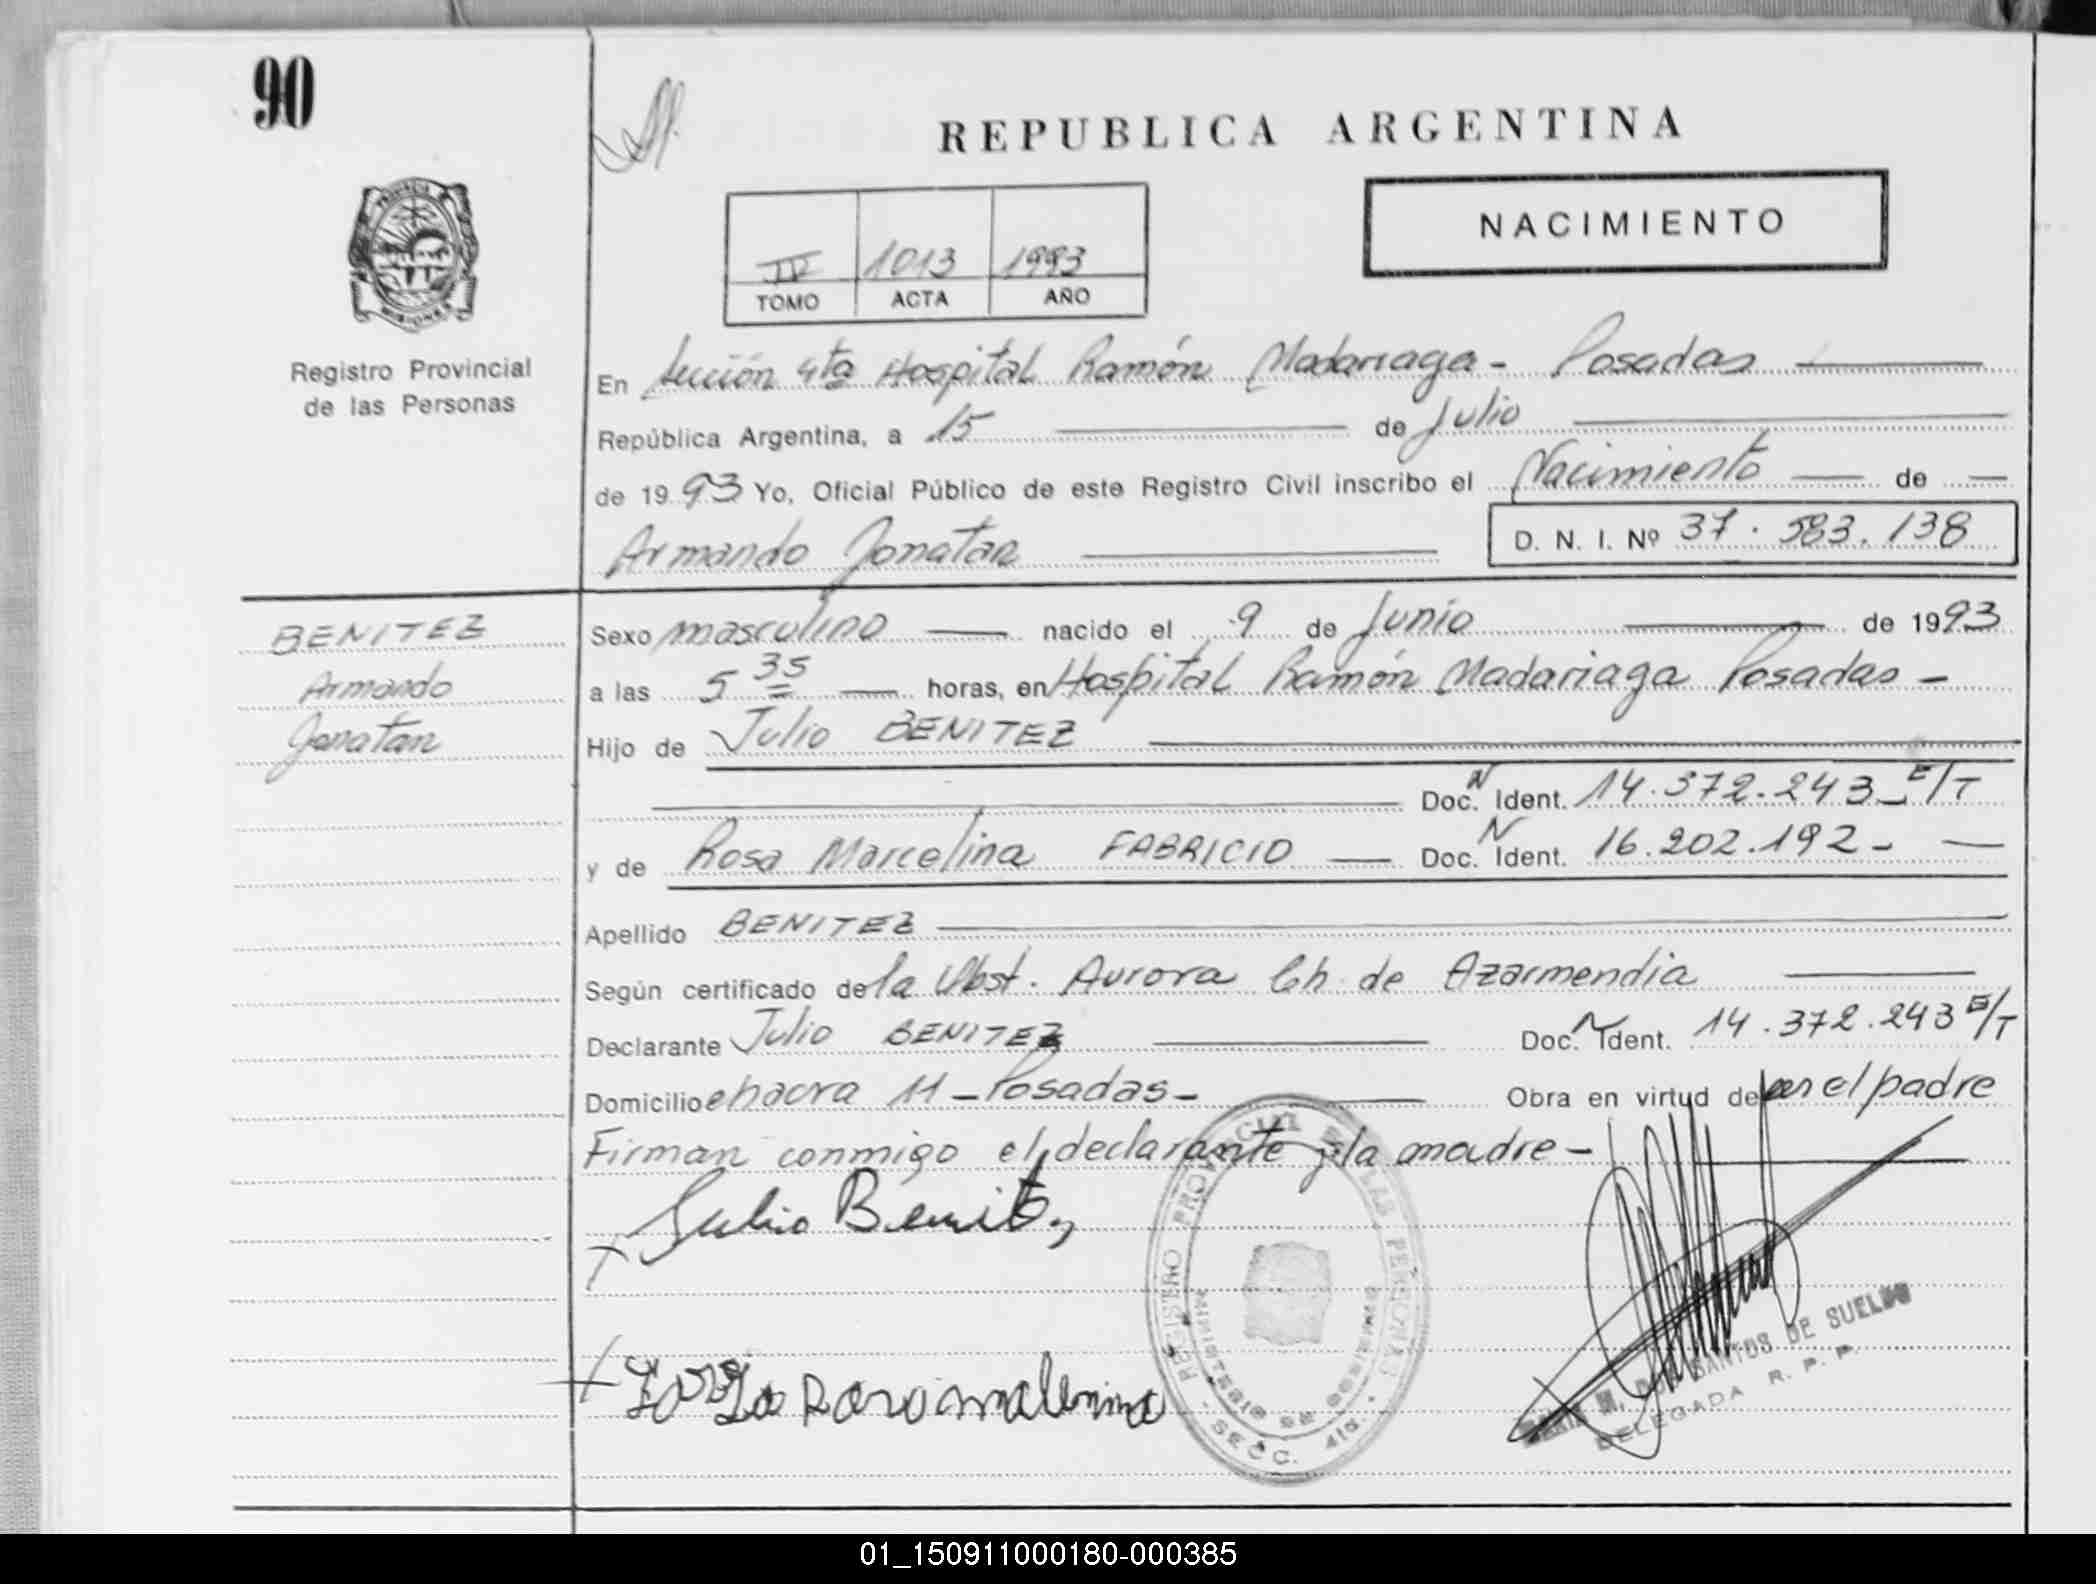 90
REPUBLICA ARGENTINA
NACIMIENTO
IV 1013 1993
TOMO ACTA AÑO
PROVINCIA
MISIONES
Registro Provincial
de las Personas
En Sección 4ta Hospital Ramón Madariaga - Posadas
República Argentina, a 15 de Julio
de 1993 Yo, Oficial Público de este Registro Civil inscribo el Nacimiento de
Armando Jonatan
D. N. I. Nº 37.583.138
BENITEZ
Armando
Jonatan
Sexo masculino nacido el 9 de Junio de 1993
a las 5 35 horas, en Hospital Ramón Madariaga Posadas -
Hijo de Julio BENITEZ
Doc. N Ident. 14.372.243 - E/T
y de Rosa Marcelina FABRICIO Doc. N Ident. 16.202.192 -
Apellido BENITEZ
Según certificado de la Obst. Aurora Ch. de Azarmendia
Declarante Julio BENITEZ Doc. N Ident. 14.372.243 E/T
Domicilio chacra 11 - Posadas - Obra en virtud de ser el padre
Firman conmigo el declarante y la madre -
Julio Benitez
REGISTRO PROVINCIAL DE LAS PERSONAS
MINISTERIO DE GOBIERNO
- SECC. 4ta. -
DOS SANTOS DE SUELDO
DELEGADA R. P. P.
01_150911000180-000385